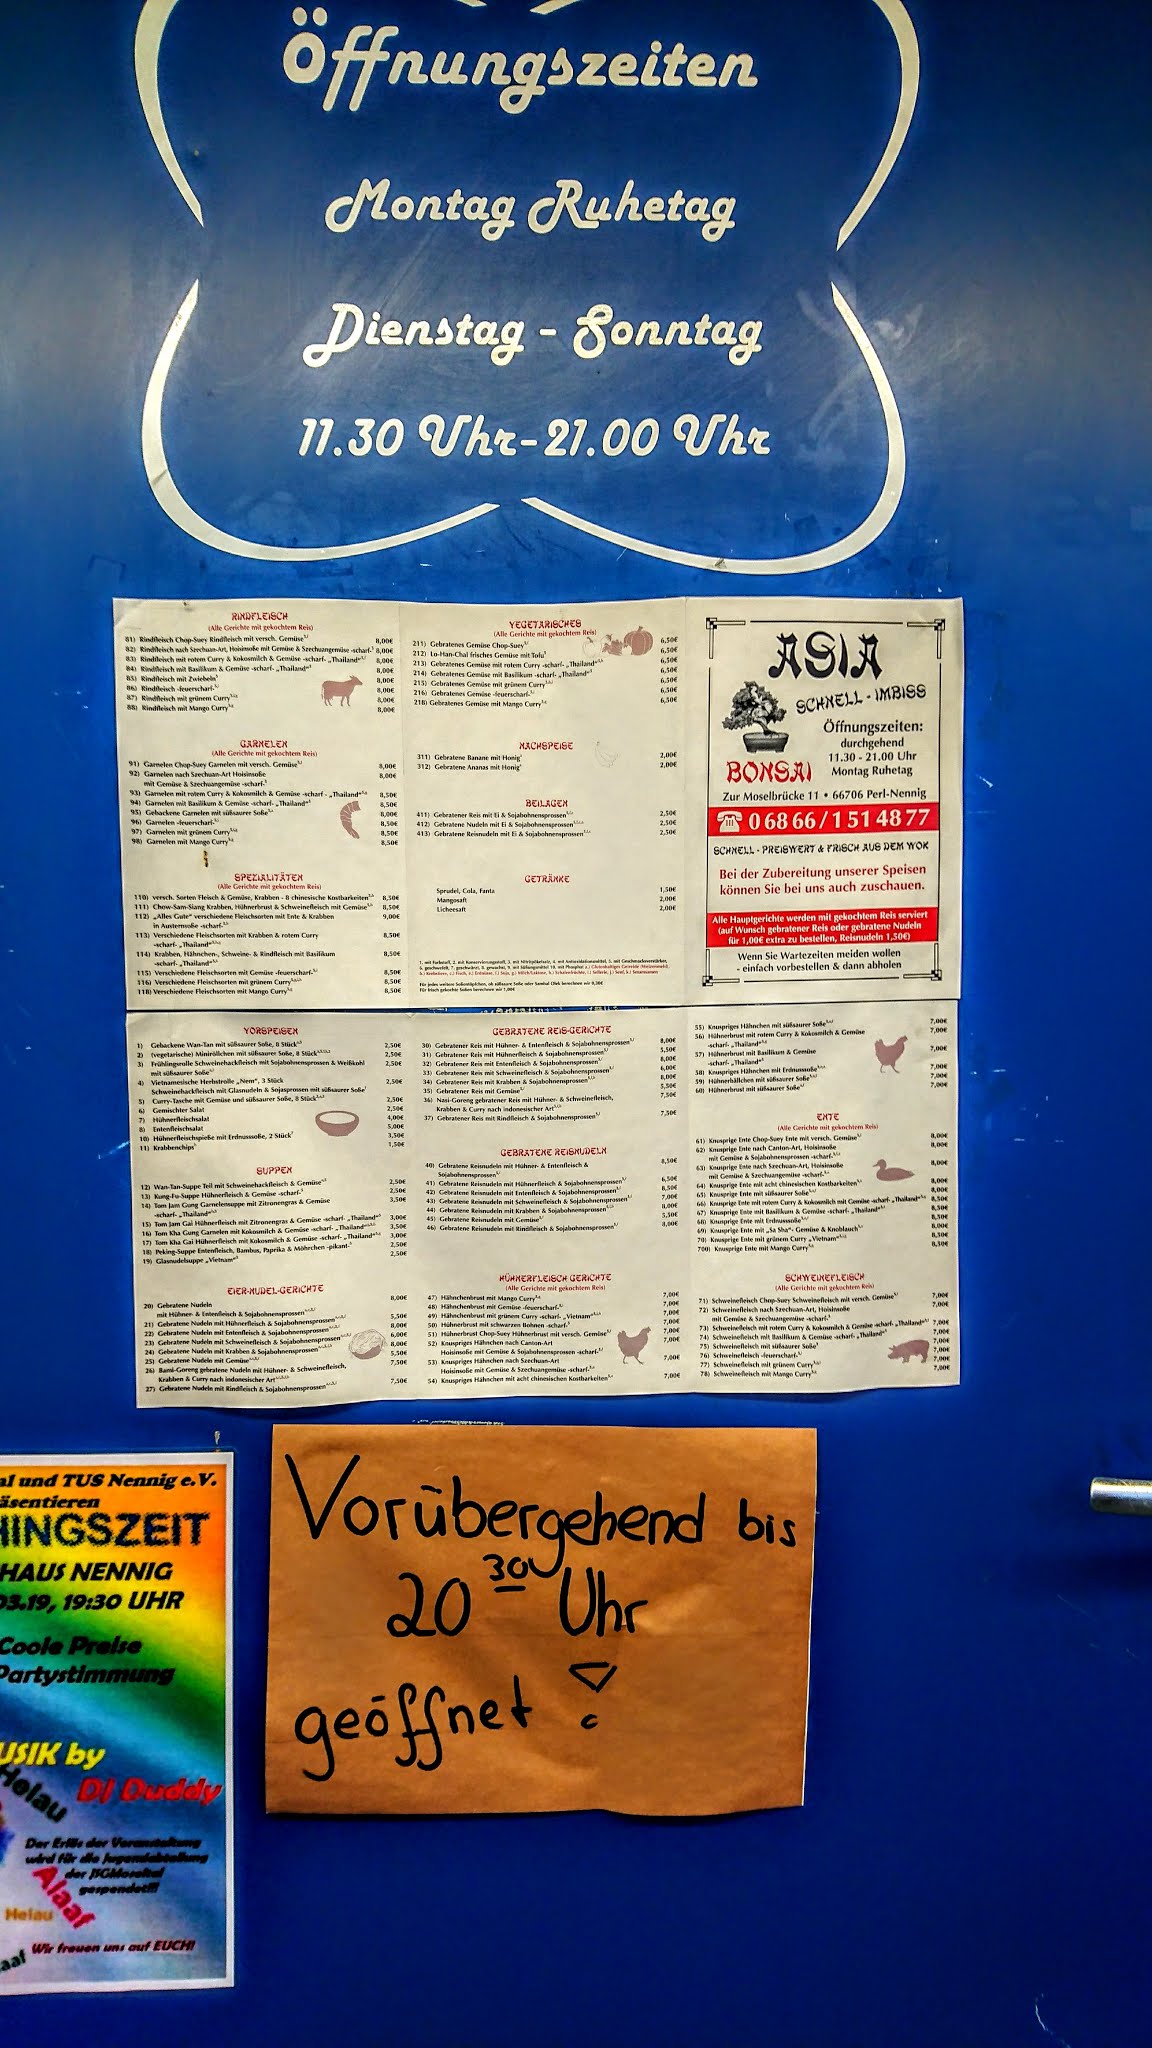 Öffnungszeiten
Montag Ruhetag
Dienstag - Sonntag
11.30 Uhr-21.00 Uhr
RINDFLEISCH
(Alle Gerichte mit gekochtem Reis)
81) Rindfleisch Chop-Suey Rindfleisch mit versch. Gemüse 8,00€
82) Rindfleisch nach Szechuan-Art, Hoisinsoße mit Gemüse & Szechuangemüse -scharf- 8,00€
83) Rindfleisch mit rotem Curry & Kokosmilch & Gemüse -scharf- „Thailand" 8,00€
84) Rindfleisch mit Basilikum & Gemüse -scharf- „Thailand" 8,00€
85) Rindfleisch mit Zwiebeln 8,00€
86) Rindfleisch -feuerscharf- 8,00€
87) Rindfleisch mit grünem Curry 8,00€
88) Rindfleisch mit Mango Curry 8,00€
GARNELEN
(Alle Gerichte mit gekochtem Reis)
91) Garnelen Chop-Suey Garnelen mit versch. Gemüse 8,00€
92) Garnelen nach Szechuan-Art Hoisinsoße 8,00€
mit Gemüse & Szechuangemüse -scharf-
93) Garnelen mit rotem Curry & Kokosmilch & Gemüse -scharf - „Thailand" 8,50€
94) Garnelen mit Basilikum & Gemüse -scharf- „Thailand" 8,50€
95) Gebackene Garnelen mit süßsaurer Soße 8,00€
96) Garnelen -feuerscharf- 8,50€
97) Garnelen mit grünem Curry 8,50€
98) Garnelen mit Mango Curry 8,50€
SPEZIALITÄTEN
(Alle Gerichte mit gekochtem Reis)
110) versch. Sorten Fleisch & Gemüse, Krabben - 8 chinesische Kostbarkeiten 8,50€
111) Chow-Sam-Siang Krabben, Hühnerbrust & Schweinefleisch mit Gemüse 8,50€
112) „Alles Gute" verschiedene Fleischsorten mit Ente & Krabben 9,00€
in Austernsoße -scharf-
113) Verschiedene Fleischsorten mit Krabben & rotem Curry 8,50€
-scharf- „Thailand"
114) Krabben, Hähnchen-, Schweine- & Rindfleisch mit Basilikum 8,50€
-scharf- „Thailand"
115) Verschiedene Fleischsorten mit Gemüse -feuerscharf- 8,50€
116) Verschiedene Fleischsorten mit grünem Curry 8,50€
118) Verschiedene Fleischsorten mit Mango Curry 8,50€
VEGETARISCHES
(Alle Gerichte mit gekochtem Reis)
211) Gebratenes Gemüse Chop-Suey 6,50€
212) Lo-Han-Chai frisches Gemüse mit Tofu 6,50€
213) Gebratenes Gemüse mit rotem Curry -scharf- „Thailand" 6,50€
214) Gebratenes Gemüse mit Basilikum -scharf- „Thailand" 6,50€
215) Gebratenes Gemüse mit grünem Curry 6,50€
216) Gebratenes Gemüse -feuerscharf- 6,50€
218) Gebratenes Gemüse mit Mango Curry 6,50€
NACHSPEISE
311) Gebratene Banane mit Honig 2,00€
312) Gebratene Ananas mit Honig 2,00€
BEILAGEN
411) Gebratener Reis mit Ei & Sojabohnensprossen 2,50€
412) Gebratene Nudeln mit Ei & Sojabohnensprossen 2,50€
413) Gebratene Reisnudeln mit Ei & Sojabohnensprossen 2,50€
GETRÄNKE
Sprudel, Cola, Fanta 1,50€
Mangosaft 2,00€
Licheesaft 2,00€
ASIA
SCHNELL - IMBISS
Öffnungszeiten:
durchgehend
11.30 - 21.00 Uhr
Montag Ruhetag
BONSAI
Zur Moselbrücke 11 • 66706 Perl-Nennig
☎ 0 68 66 / 1 51 48 77
SCHNELL - PREISWERT & FRISCH AUS DEM WOK
Bei der Zubereitung unserer Speisen
können Sie bei uns auch zuschauen.
Alle Hauptgerichte werden mit gekochtem Reis serviert
(auf Wunsch gebratener Reis oder gebratene Nudeln
für 1,00€ extra zu bestellen, Reisnudeln 1,50€)
Wenn Sie Wartezeiten meiden wollen
- einfach vorbestellen & dann abholen
VORSPEISEN
1) Gebackene Wan-Tan mit süßsaurer Soße, 8 Stück 2,50€
2) (vegetarische) Miniröllchen mit süßsaurer Soße, 8 Stück 2,50€
3) Frühlingsrolle Schweinehackfleisch mit Sojabohnensprossen & Weißkohl 2,50€
mit süßsaurer Soße
4) Vietnamesische Herbstrolle „Nem", 3 Stück 2,50€
Schweinehackfleisch mit Glasnudeln & Sojasprossen mit süßsaurer Soße
5) Curry-Tasche mit Gemüse und süßsaurer Soße, 8 Stück 2,50€
6) Gemischter Salat 2,50€
7) Hühnerfleischsalat 4,00€
8) Entenfleischsalat 5,00€
10) Hühnerfleischspieße mit Erdnusssoße, 2 Stück 3,50€
11) Krabbenchips 1,50€
SUPPEN
12) Wan-Tan-Suppe Teil mit Schweinehackfleisch & Gemüse 2,50€
13) Kung-Fu-Suppe Hühnerfleisch & Gemüse -scharf- 2,50€
14) Tom Jam Gung Garnelensuppe mit Zitronengras & Gemüse 3,50€
-scharf- „Thailand"
15) Tom Jam Gai Hühnerfleisch mit Zitronengras & Gemüse -scharf- „Thailand" 3,00€
16) Tom Kha Gung Garnelen mit Kokosmilch & Gemüse -scharf- „Thailand" 3,50€
17) Tom Kha Gai Hühnerfleisch mit Kokosmilch & Gemüse -scharf- „Thailand" 3,00€
18) Peking-Suppe Entenfleisch, Bambus, Paprika & Möhrchen -pikant- 2,50€
19) Glasnudelsuppe „Vietnam" 2,50€
EIER-NUDEL-GERICHTE
20) Gebratene Nudeln 8,00€
mit Hühner- & Entenfleisch & Sojabohnensprossen
21) Gebratene Nudeln mit Hühnerfleisch & Sojabohnensprossen 5,50€
22) Gebratene Nudeln mit Entenfleisch & Sojabohnensprossen 8,00€
23) Gebratene Nudeln mit Schweinefleisch & Sojabohnensprossen 6,00€
24) Gebratene Nudeln mit Krabben & Sojabohnensprossen 8,00€
25) Gebratene Nudeln mit Gemüse 5,50€
26) Bami-Goreng gebratene Nudeln mit Hühner- & Schweinefleisch, 7,50€
Krabben & Curry nach indonesischer Art
27) Gebratene Nudeln mit Rindfleisch & Sojabohnensprossen 7,50€
GEBRATENE REIS-GERICHTE
30) Gebratener Reis mit Hühner- & Entenfleisch & Sojabohnensprossen 8,00€
31) Gebratener Reis mit Hühnerfleisch & Sojabohnensprossen 5,50€
32) Gebratener Reis mit Entenfleisch & Sojabohnensprossen 8,00€
33) Gebratener Reis mit Schweinefleisch & Sojabohnensprossen 6,00€
34) Gebratener Reis mit Krabben & Sojabohnensprossen 8,00€
35) Gebratener Reis mit Gemüse 5,50€
36) Nasi-Goreng gebratener Reis mit Hühner- & Schweinefleisch, 7,50€
Krabben & Curry nach indonesischer Art
37) Gebratener Reis mit Rindfleisch & Sojabohnensprossen 7,50€
GEBRATENE REISNUDELN
40) Gebratene Reisnudeln mit Hühner- & Entenfleisch & 8,50€
Sojabohnensprossen
41) Gebratene Reisnudeln mit Hühnerfleisch & Sojabohnensprossen 6,50€
42) Gebratene Reisnudeln mit Entenfleisch & Sojabohnensprossen 8,50€
43) Gebratene Reisnudeln mit Schweinefleisch & Sojabohnensprossen 7,00€
44) Gebratene Reisnudeln mit Krabben & Sojabohnensprossen 8,50€
45) Gebratene Reisnudeln mit Gemüse 5,50€
46) Gebratene Reisnudeln mit Rindfleisch & Sojabohnensprossen 8,00€
HÜHNERFLEISCH GERICHTE
(Alle Gerichte mit gekochtem Reis)
47) Hähnchenbrust mit Mango Curry 7,00€
48) Hähnchenbrust mit Gemüse -feuerscharf- 7,00€
49) Hähnchenbrust mit grünem Curry -scharf- „Vietnam" 7,00€
50) Hühnerbrust mit schwarzen Bohnen -scharf- 7,00€
51) Hühnerbrust Chop-Suey Hühnerbrust mit versch. Gemüse 7,00€
52) Knuspriges Hähnchen nach Canton-Art 7,00€
Hoisinsoße mit Gemüse & Sojabohnensprossen -scharf-
53) Knuspriges Hähnchen nach Szechuan-Art 7,00€
Hoisinsoße mit Gemüse & Szechuangemüse -scharf-
54) Knuspriges Hähnchen mit acht chinesischen Kostbarkeiten 7,00€
55) Knuspriges Hähnchen mit süßsaurer Soße 7,00€
56) Hühnerbrust mit rotem Curry & Kokosmilch & Gemüse 7,00€
-scharf- „Thailand"
57) Hühnerbrust mit Basilikum & Gemüse 7,00€
-scharf- „Thailand"
58) Knuspriges Hähnchen mit Erdnusssoße 7,00€
59) Hühnerbällchen mit süßsaurer Soße 7,00€
60) Hühnerbrust mit süßsaurer Soße 7,00€
ENTE
(Alle Gerichte mit gekochtem Reis)
61) Knusprige Ente Chop-Suey Ente mit versch. Gemüse 8,00€
62) Knusprige Ente nach Canton-Art, Hoisinsoße 8,00€
mit Gemüse & Sojabohnensprossen -scharf-
63) Knusprige Ente nach Szechuan-Art, Hoisinsoße 8,00€
mit Gemüse & Szechuangemüse -scharf-
64) Knusprige Ente mit acht chinesischen Kostbarkeiten 8,00€
65) Knusprige Ente mit süßsaurer Soße 8,00€
66) Knusprige Ente mit rotem Curry & Kokosmilch mit Gemüse -scharf- „Thailand" 8,50€
67) Knusprige Ente mit Basilikum & Gemüse -scharf- „Thailand" 8,50€
68) Knusprige Ente mit Erdnusssoße 8,50€
69) Knusprige Ente mit „Sa Sha"- Gemüse & Knoblauch 8,00€
70) Knusprige Ente mit grünem Curry „Vietnam" 8,50€
700) Knusprige Ente mit Mango Curry 8,50€
SCHWEINEFLEISCH
(Alle Gerichte mit gekochtem Reis)
71) Schweinefleisch Chop-Suey Schweinefleisch mit versch. Gemüse 7,00€
72) Schweinefleisch nach Szechuan-Art, Hoisinsoße 7,00€
mit Gemüse & Szechuangemüse -scharf-
73) Schweinefleisch mit rotem Curry & Kokosmilch & Gemüse -scharf- „Thailand" 7,00€
74) Schweinefleisch mit Basilikum & Gemüse -scharf- „Thailand" 7,00€
75) Schweinefleisch mit süßsaurer Soße 7,00€
76) Schweinefleisch -feuerscharf- 7,00€
77) Schweinefleisch mit grünem Curry 7,00€
78) Schweinefleisch mit Mango Curry 7,00€
Vorübergehend bis
20 30 Uhr
geöffnet !
al und TUS Nennig e.V.
äsentieren
HINGSZEIT
HAUS NENNIG
03.19, 19:30 UHR
Coole Preise
Partystimmung
USIK by
DJ Duddy
Helau
Der Erlös der Veranstaltung
wird für die Jugendabteilung
der JSGMoseltal
gespendet!!!
Alaaf
Helau
aaf
Wir freuen uns auf EUCH!